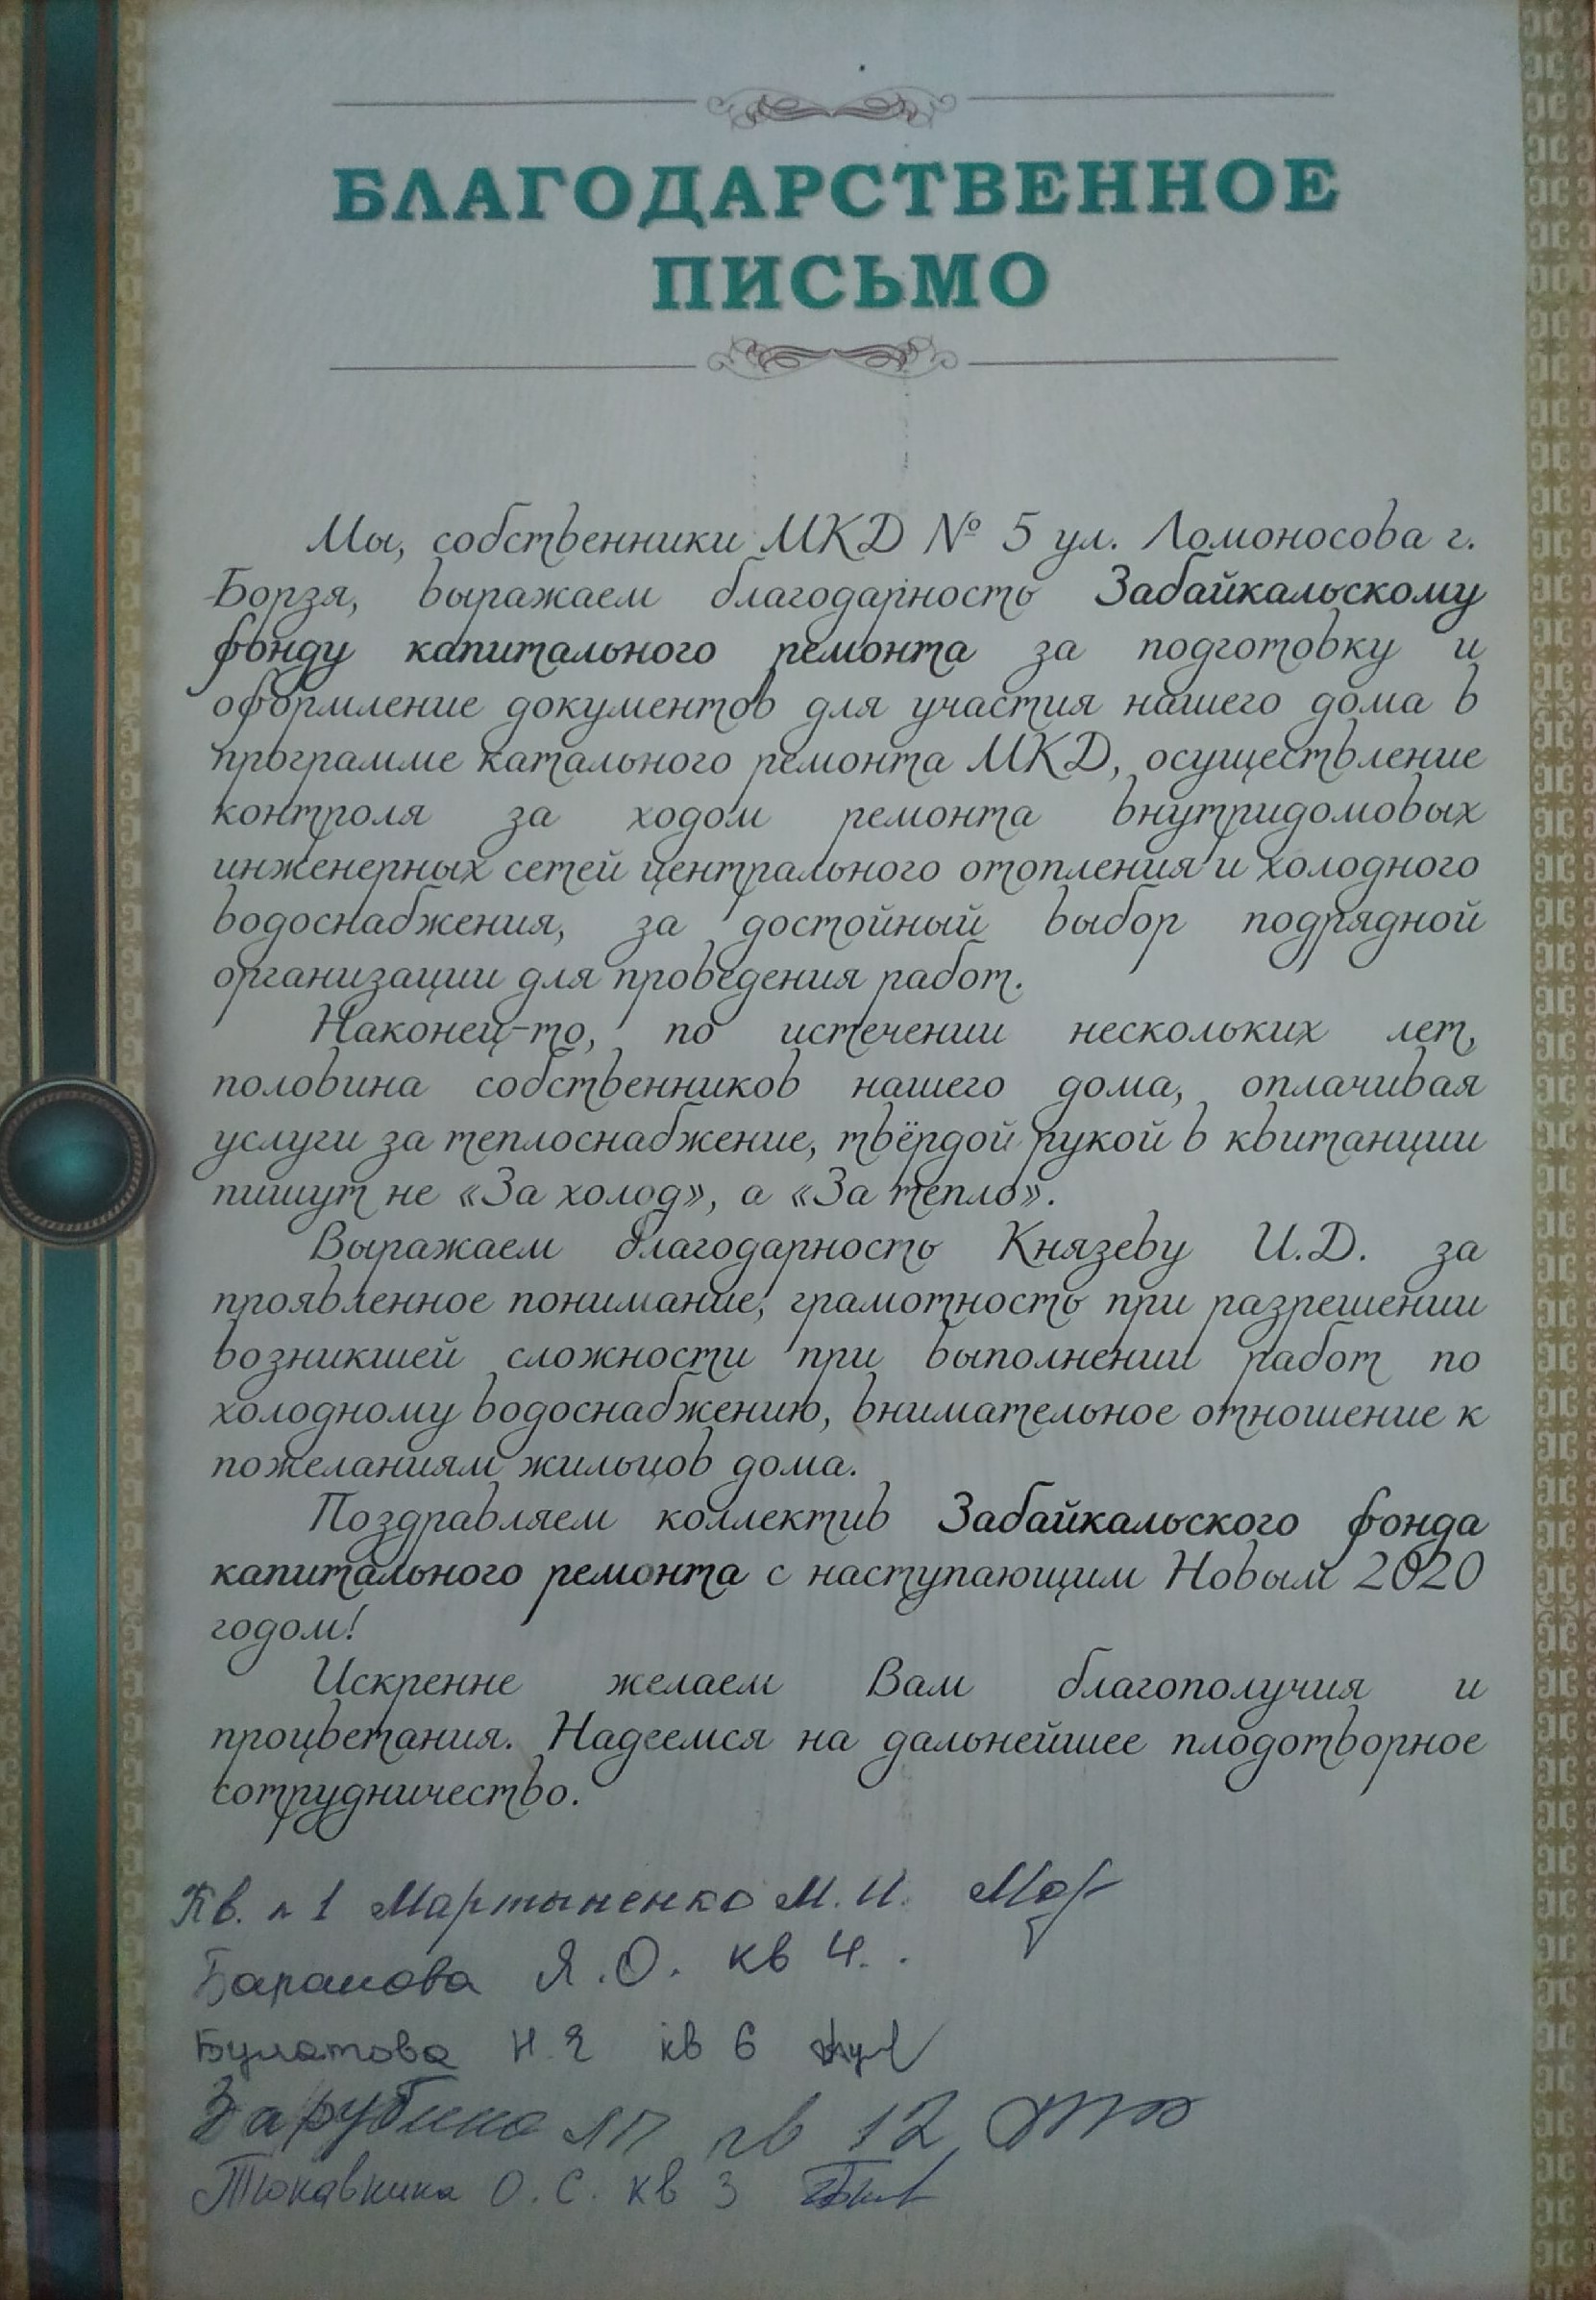 БЛАГОДАРСТВЕННОЕ
ПИСЬМО
Мы, собственники МКД № 5 ул. Ломоносова г.
Борзя, выражаем благодарность Забайкальскому
фонду капитального ремонта за подготовку и
оформление документов для участия нашего дома в
программе катального ремонта МКД, осуществление
контроля за ходом ремонта внутридомовых
инженерных сетей центрального отопления и холодного
водоснабжения, за достойный выбор подрядной
организации для проведения работ.
Наконец-то, по истечении нескольких лет,
половина собственников нашего дома, оплачивая
услуги за теплоснабжение, твёрдой рукой в квитанции
пишут не «За холод», а «За тепло».
Выражаем благодарность Князеву И.Д. за
проявленное понимание, грамотность при разрешении
возникшей сложности при выполнении работ по
холодному водоснабжению, внимательное отношение к
пожеланиям жильцов дома.
Поздравляем коллектив Забайкальского фонда
капитального ремонта с наступающим Новым 2020
годом!
Искренне желаем Вам благополучия и
процветания. Надеемся на дальнейшее плодотворное
сотрудничество.
Кв. 1 Мартыненко М.И.
Баранова Я.О. кв 4.
Булатова Н.Я кв 6
Зарубина ЛП кв 12
Тюкавкина О.С. кв 3